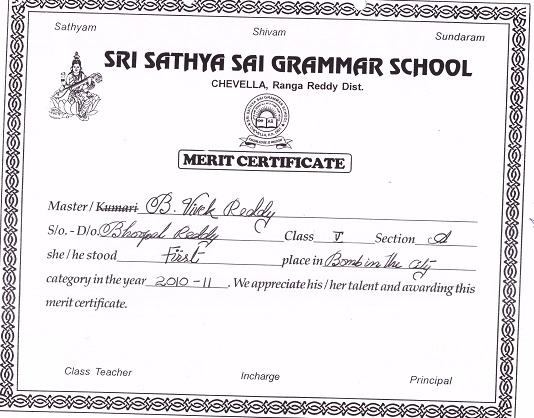 Sathyam Shivam Sundaram
SRI SATHYA SAI GRAMMAR SCHOOL
CHEVELLA, Ranga Reddy Dist.
MERIT CERTIFICATE
Master / Kumari B. Vivek Reddy
S/o. - D/o. Bhoopal Reddy Class V Section A
she / he stood First place in Bomb in The City
category in the year 2010 - 11 . We appreciate his / her talent and awarding this
merit certificate.
Class Teacher Incharge Principal